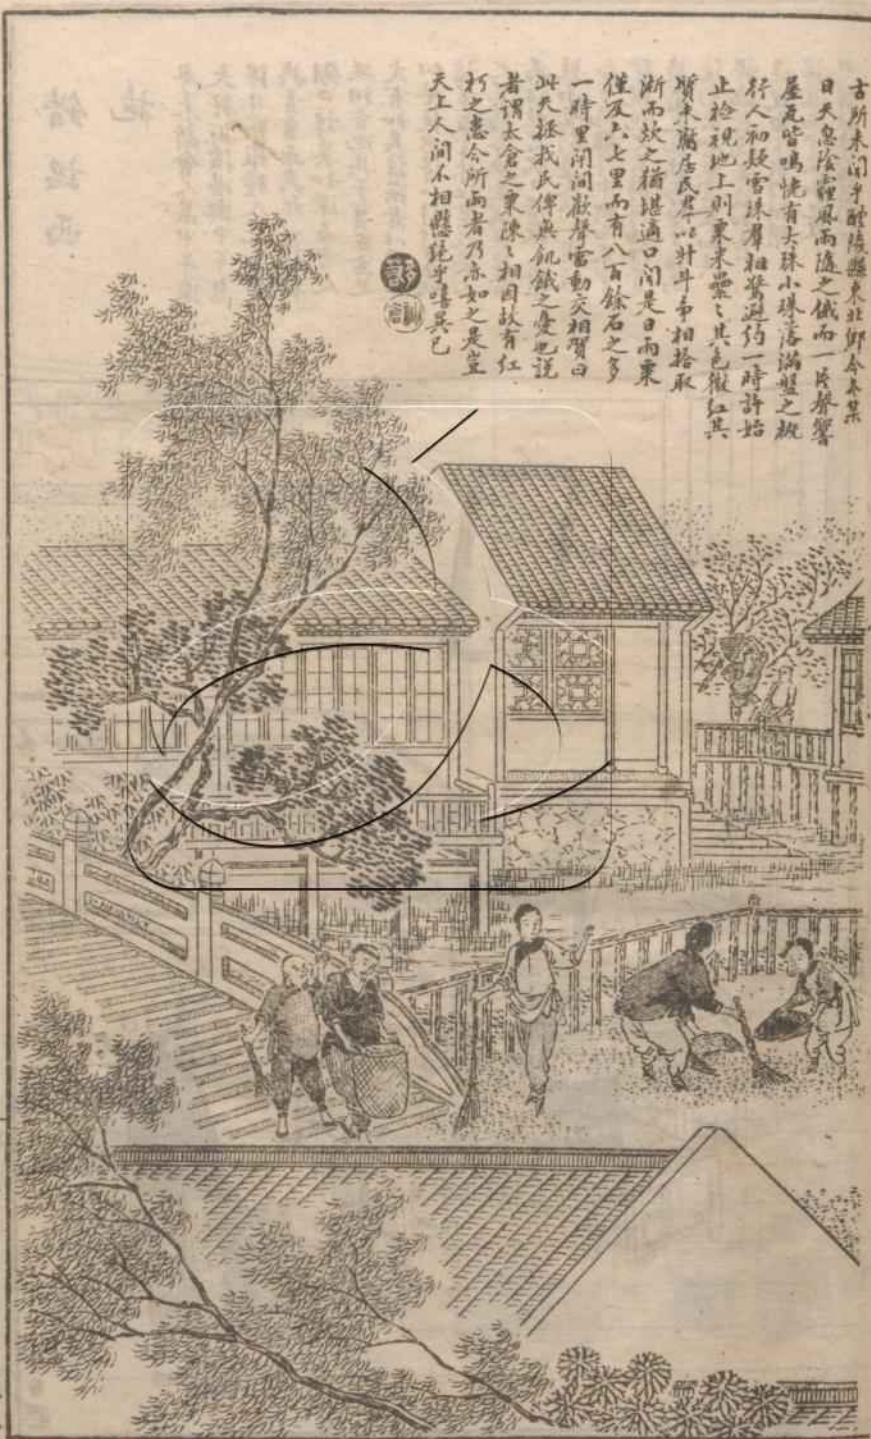 古所未聞乎醴陵縣東北鄉今冬某
日天忽陰霾風雨隨之俄而一片聲響
屋瓦皆鳴恍有大珠小珠落滿盤之概
行人初疑雪珠羣相驚避約一時許始
止檢視地上則粟米纍纍其色微紅其
質未腐居民羣以升斗帚相拾取
淅而炊之猶堪適口聞是日雨粟
僅及六七里而有八百餘石之多
一時里閈間歡聲雷動交相賀曰
此天拯我民俾無飢餓之憂也說
者謂太倉之粟陳陳相因故有紅
朽之患今所雨者乃亦如之是豈
天上人間不相懸絕乎噫異已